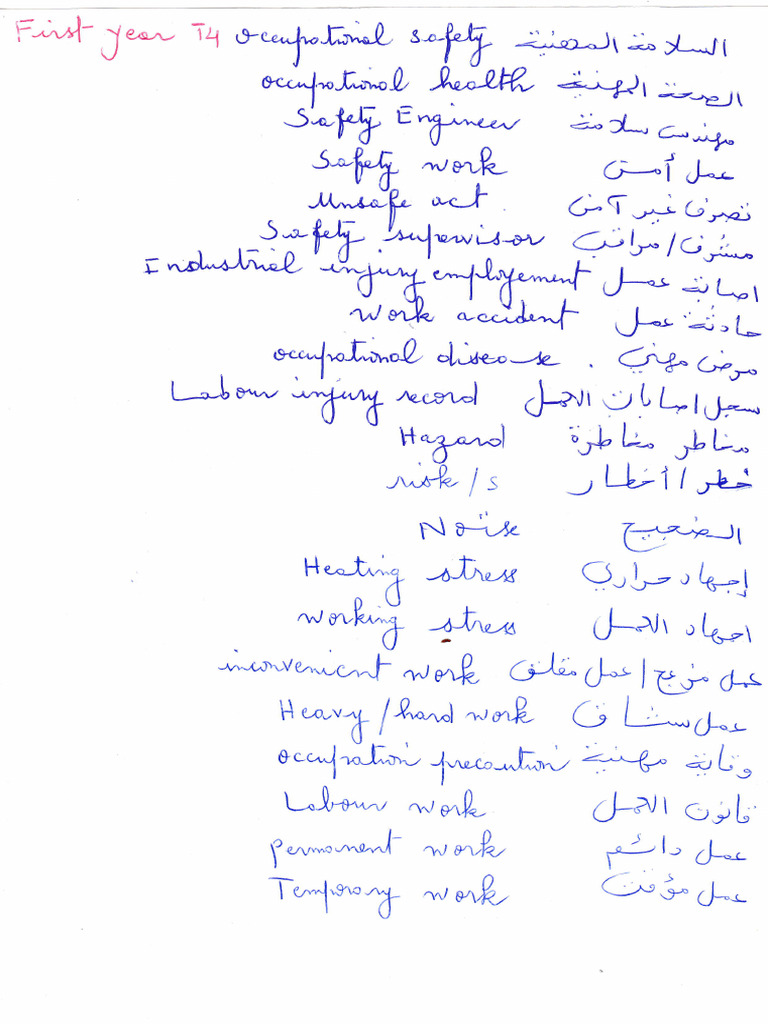 First year T4 occupational safety السلامة المهنية
occupational health الصحة المهنية
Safety Engineer مهندس سلامة
Safety work عمل أمن
Unsafe act تصرف غير آمن
Safety supervisor مشرف / مراقب
Industrial injury employement اصابة عمل
Work accident حادثة عمل
occupational disease . مرض مهني
Labour injury record سجل اصابات العمل
Hazard مخاطر مخاطرة
risk/s خطر / أخطار
Noise الضجيج
Heating stress إجهاد حراري
working stress اجهاد العمل
inconvenient work عمل مزعج / عمل مقلق
Heavy/hard work عمل شاق
occupation precaution وقاية مهنية
Labour work قانون العمل
permanent work عمل دائم
Temporary work عمل مؤقت